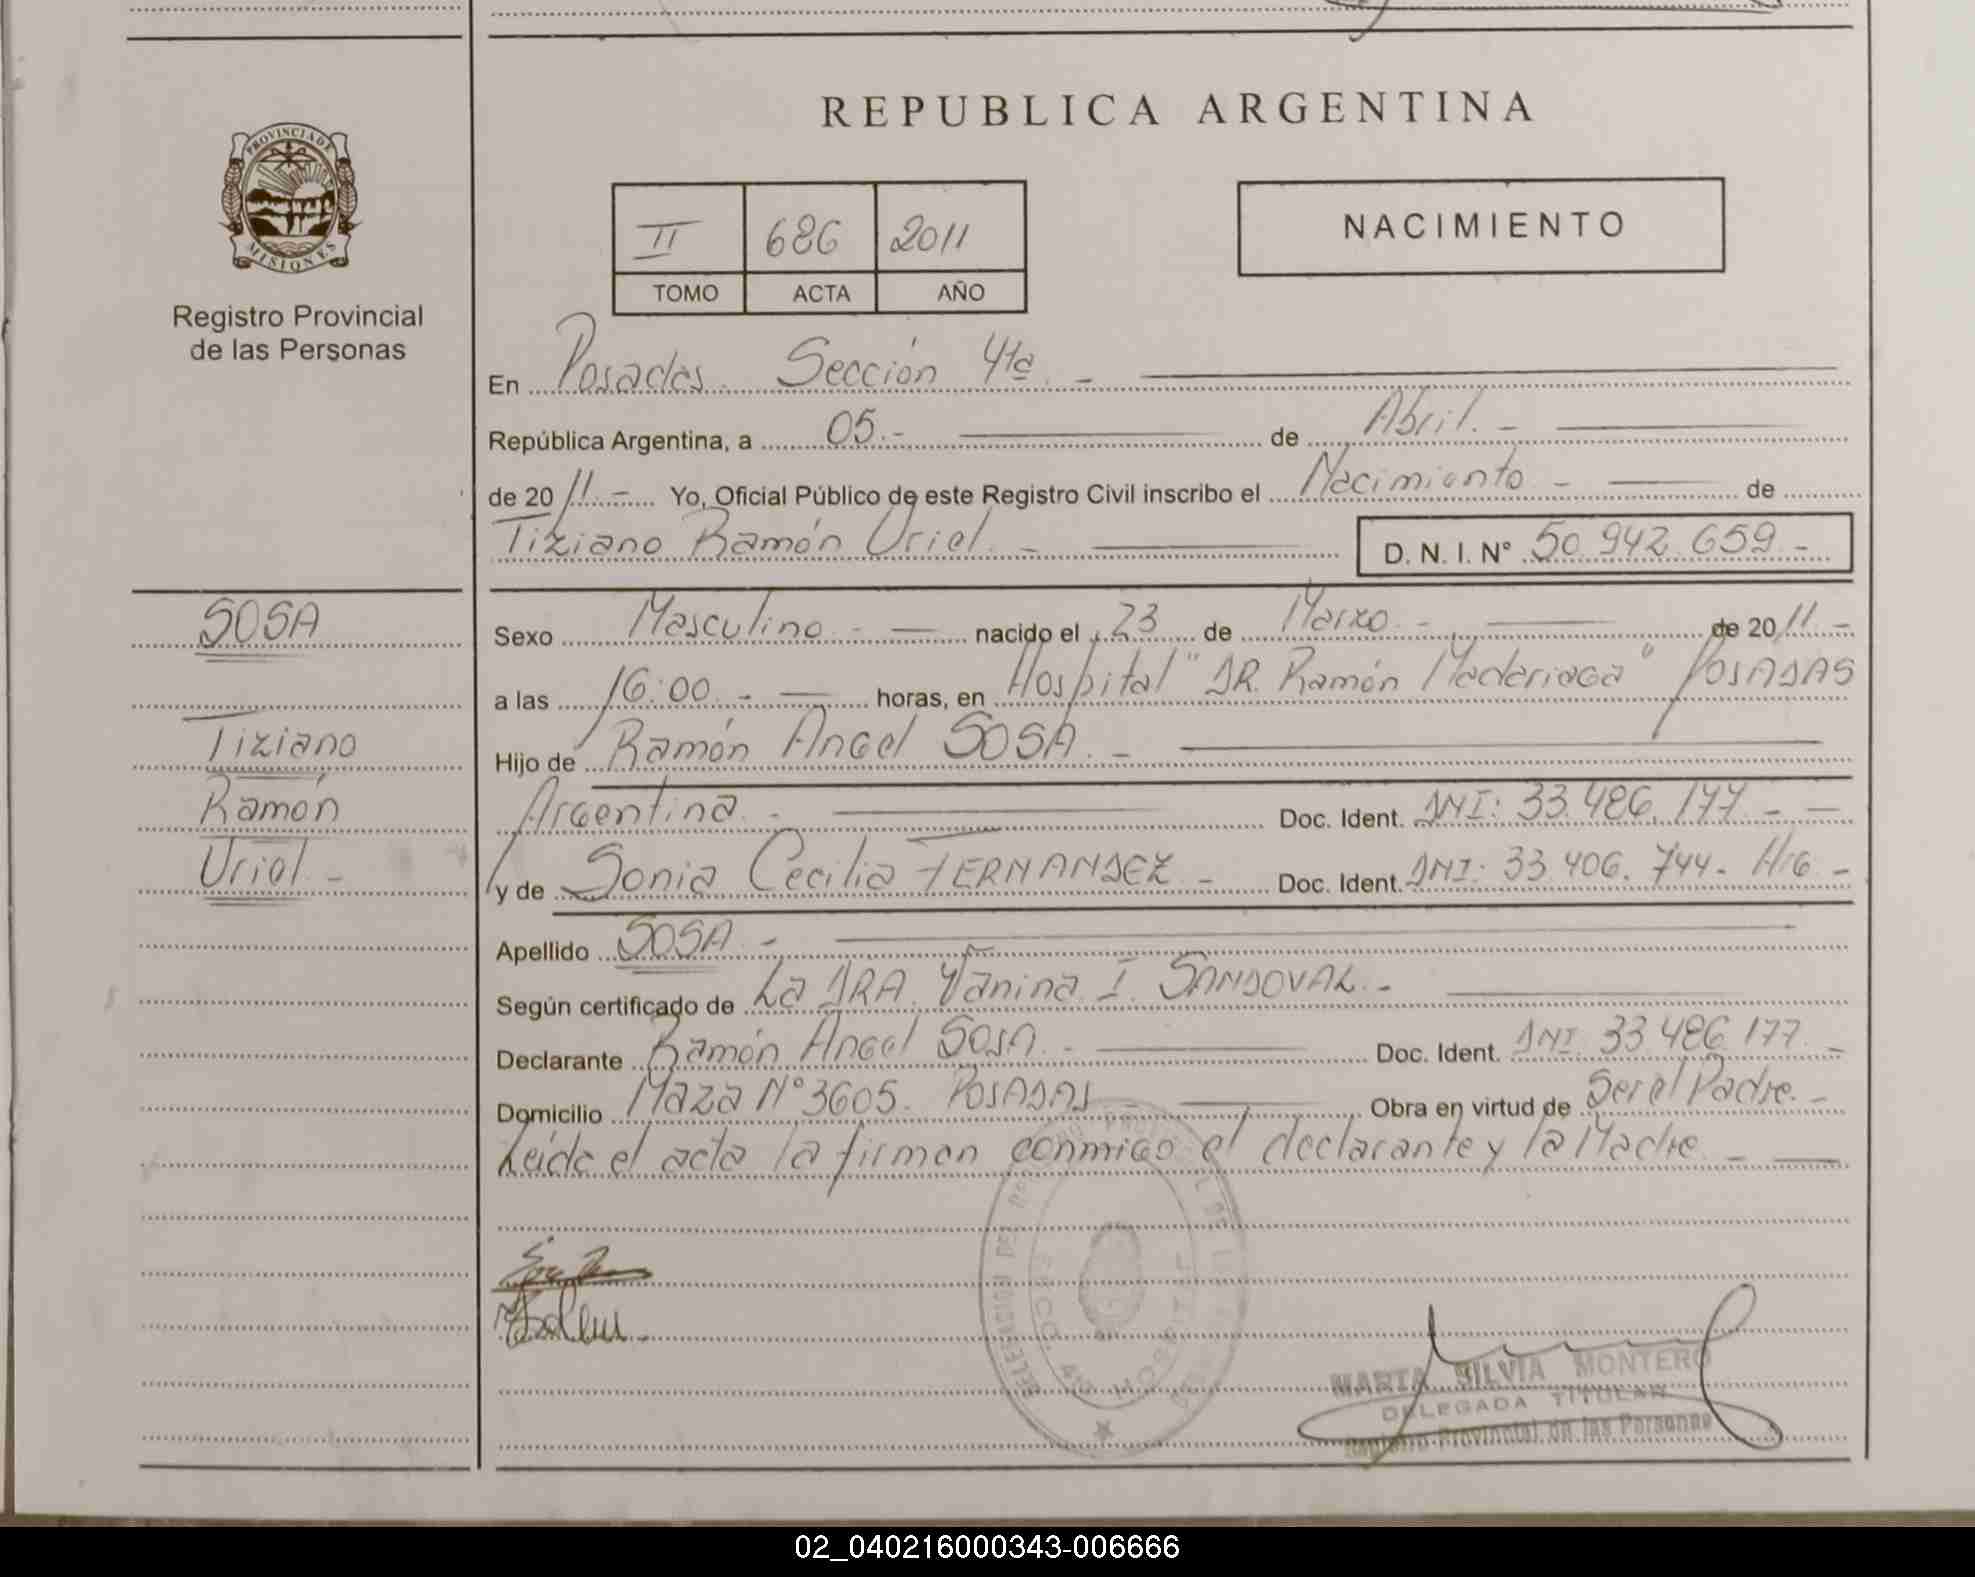 REPUBLICA ARGENTINA
PROVINCIA DE
MISIONES
Registro Provincial
de las Personas
II 686 2011
TOMO ACTA AÑO
NACIMIENTO
En Posadas Sección 4ta. -
República Argentina, a 05.- de Abril. -
de 2011.- Yo, Oficial Público de este Registro Civil inscribo el Nacimiento - de
Tiziano Ramón Uriel. - D. N. I. N° 50.942.659 -
SOSA
Tiziano
Ramón
Uriel. -
Sexo Masculino - nacido el 23 de Marzo - de 2011. -
a las 16:00. - horas, en Hospital "DR. Ramón Madariaga" POSADAS
Hijo de Ramón Angel SOSA. -
Argentina. - Doc. Ident. DNI: 33.486.177 - -
y de Sonia Cecilia FERNANDEZ - Doc. Ident. DNI: 33.406.744 -
Apellido SOSA. -
Según certificado de La DRA. Vanina I. SANDOVAL. -
Declarante Ramón Angel SOSA. - Doc. Ident. DNI 33.486.177. -
Domicilio Maza N° 3605. POSADAS - Obra en virtud de Ser el Padre. -
Leída el acta la firman conmigo el declarante y la Madre. -
MARTA SILVIA MONTERO
DELEGADA TITULAR
Registro Provincial de las Personas
02_040216000343-006666